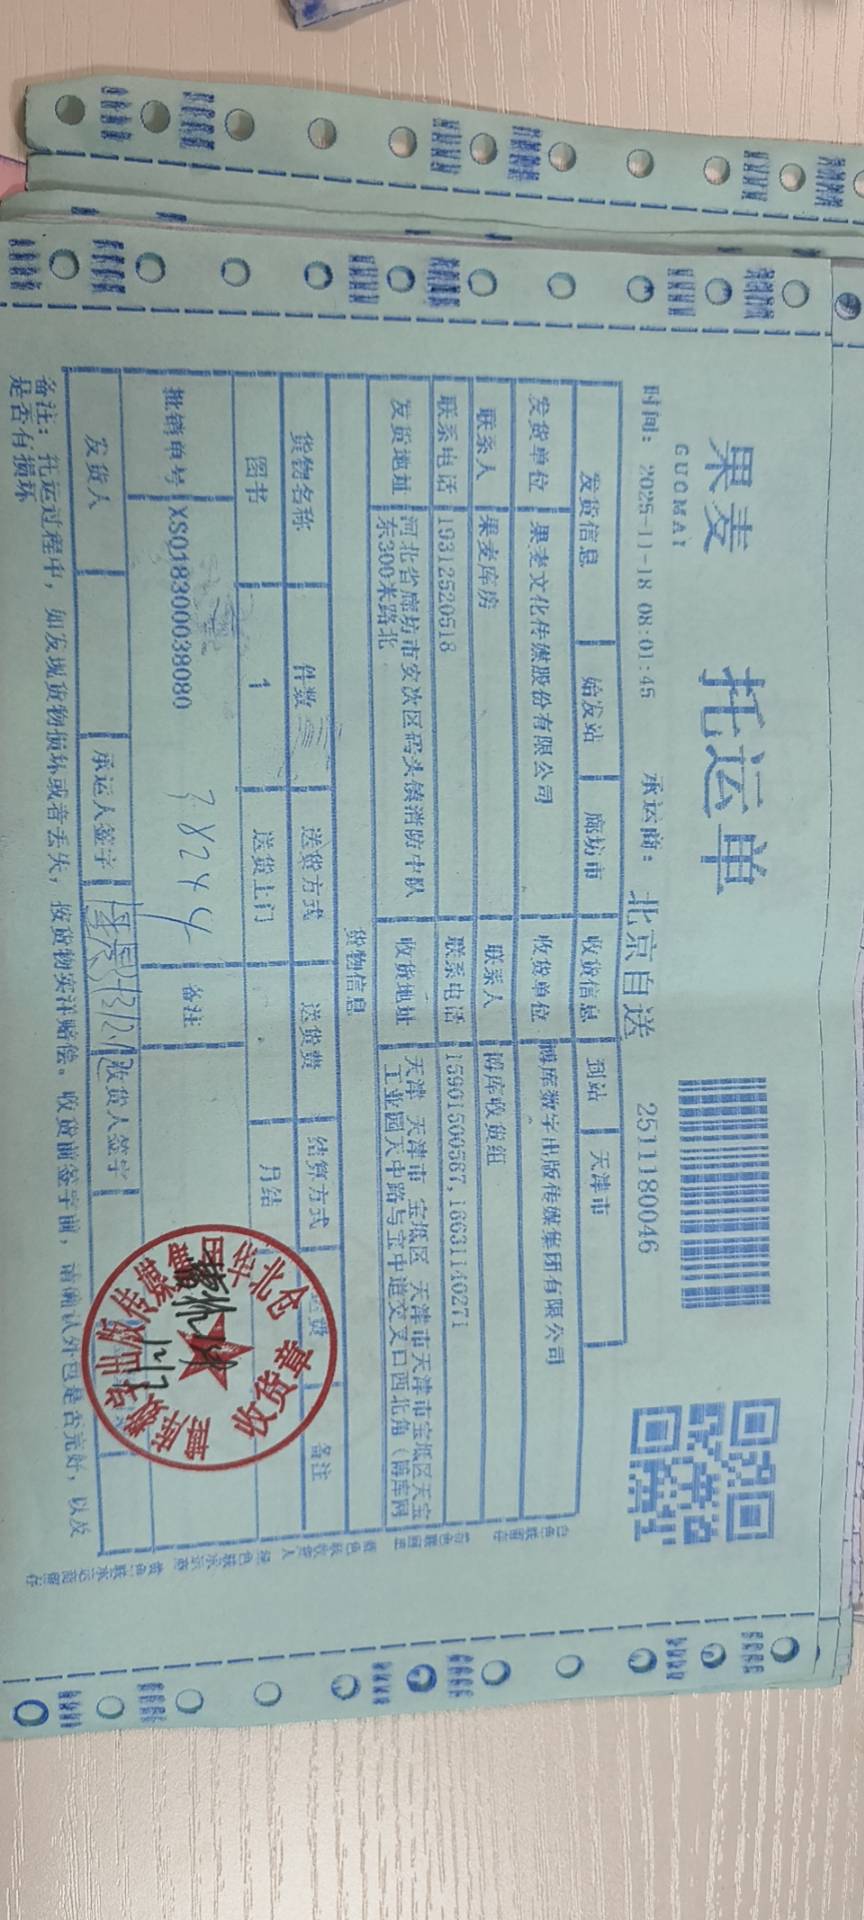 果麦 托运单
GUOMAI
时间: 2025-11-18 08:01:45 承运商: 北京自送 2511180046
发货信息 始发站 廊坊市 收货信息 到站 天津市
发货单位 果麦文化传媒股份有限公司 收货单位 博库数字出版传媒集团有限公司
联系人 果麦库房 联系人 博库收货组
联系电话 19312520518 联系电话 15901500587,18631140271
发货地址 河北省廊坊市安次区码头镇消防中队 收货地址 天津 天津市 宝坻区 天津市天津市宝坻区天宝
东300米路北 工业园天中路与宝中道交叉口西北角(博库网
货物信息
货物名称 件数 送货方式 送货费 结算方式 备注
图书 1 送货上门 月结
批销单号 XSQ18300038080 38244 备注
发货人 承运人签字 收货人签字
备注: 托运过程中, 如发现货物损坏或者丢失, 按货物实洋赔偿。收货前签字前, 请确认外包是否完好, 以及
是否有损坏
博库数字出版传媒集团华北仓
收货章